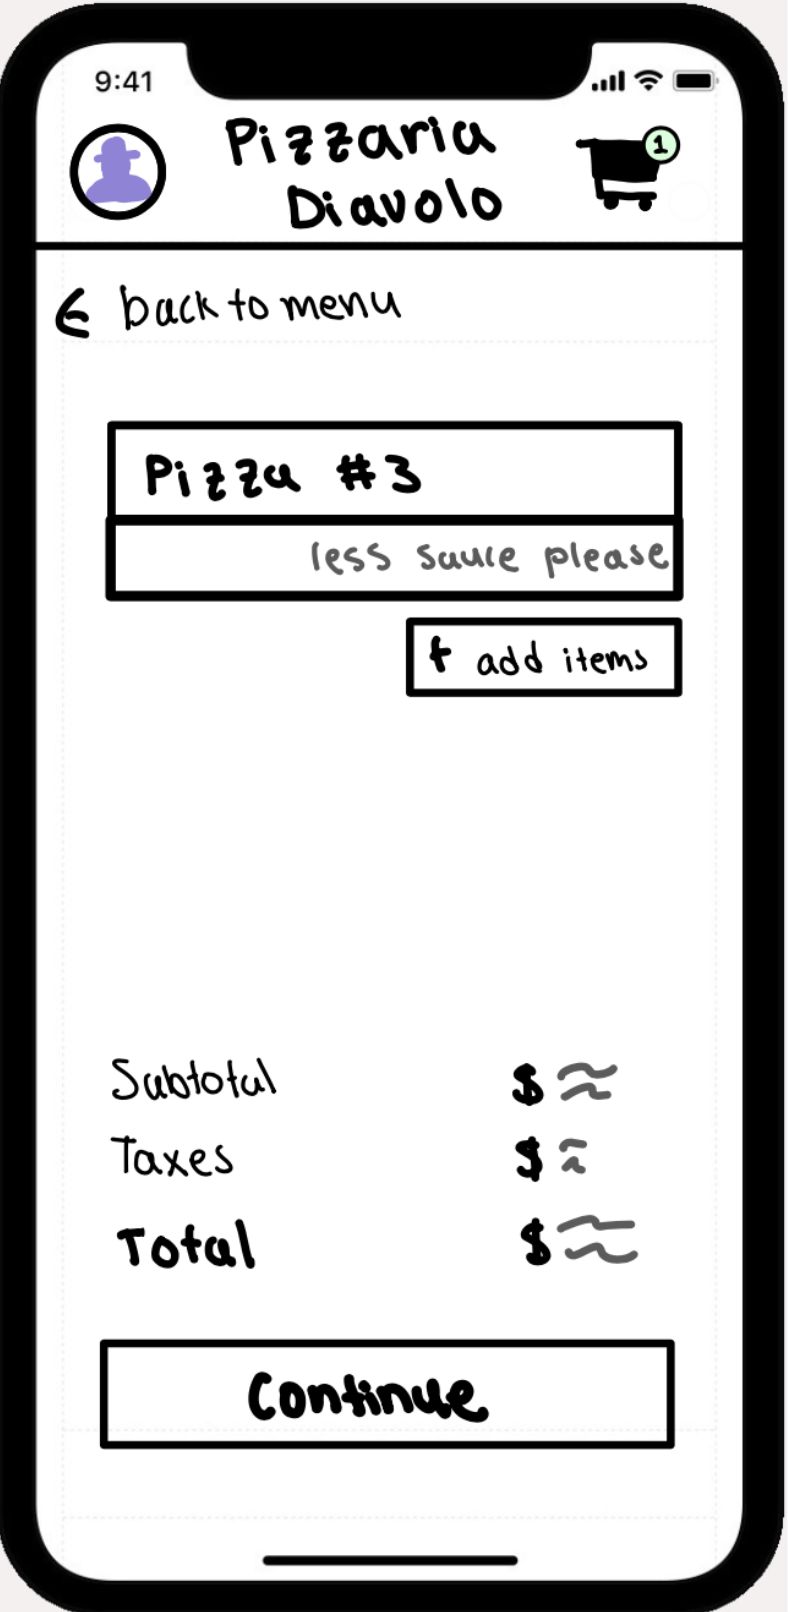 9:41
Pizzaria
Diavolo
1
back to menu
Pizza #3
less sauce please
+ add items
Subtotal $
Taxes $
Total $
Continue